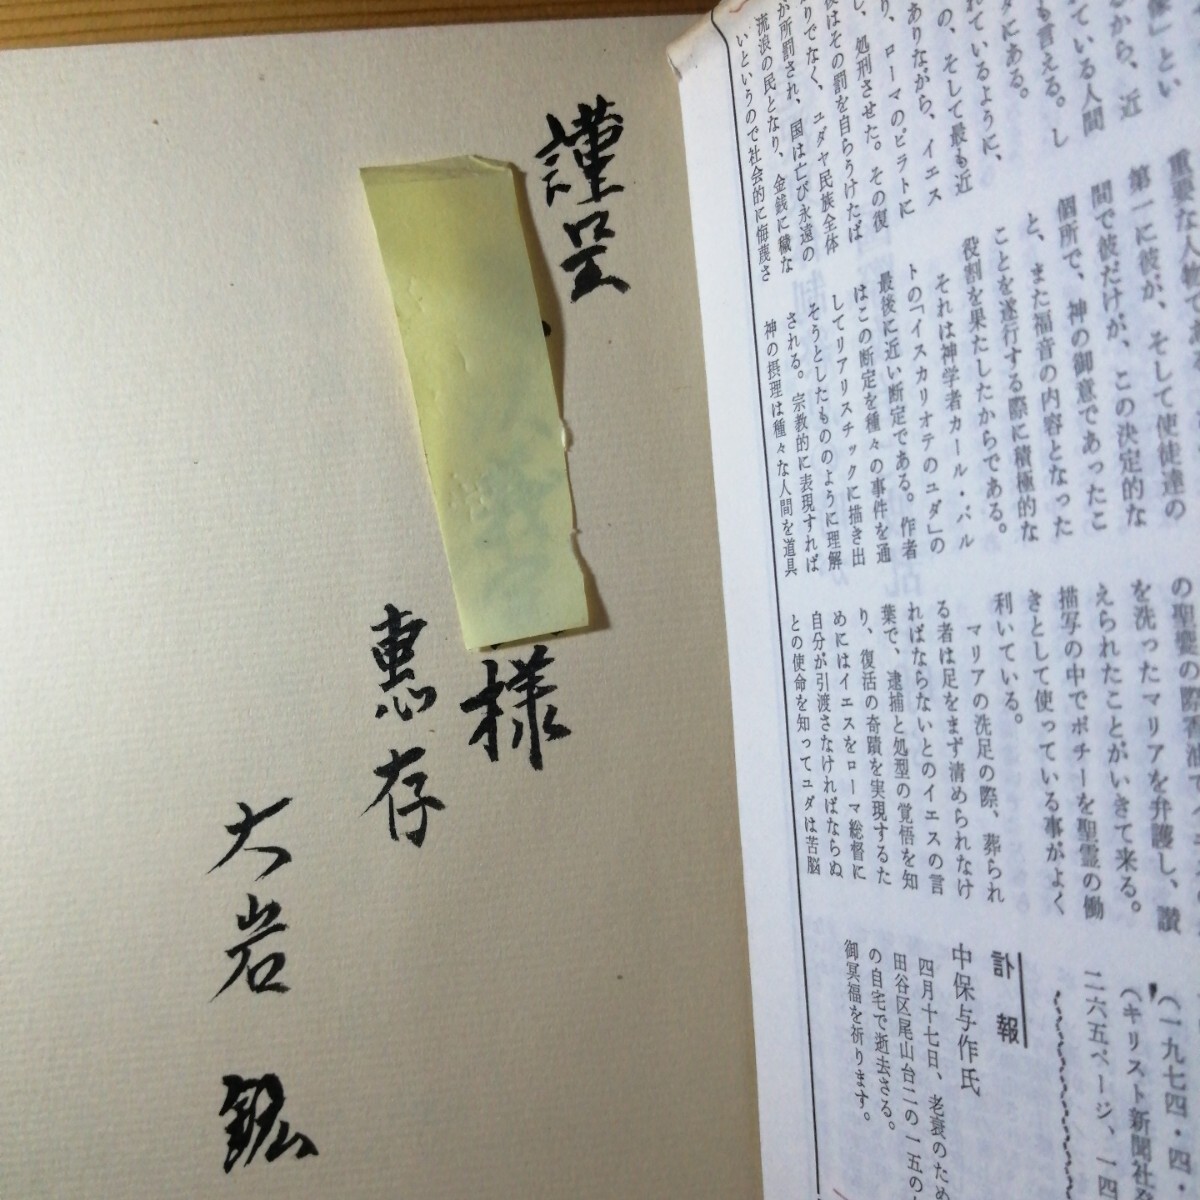 謹呈
様
惠存
大岩 鉱
像」とい
るから、近
ている人間
も言える。し
ダにある。
れているように、
の、そして最も近
ありながら、イエス
り、ローマのピラトに
し、処刑させた。その復
後はその罰を自らうけたば
りでなく、ユダヤ民族全体
が所罰され、国は亡び永遠の
流浪の民となり、金銭に穢な
いというので社会的に侮蔑さ
重要な人物であ
第一に彼が、そして使徒達の
間で彼だけが、この決定的な
個所で、神の御意であったこ
と、また福音の内容となった
ことを遂行する際に積極的な
役割を果たしたからである。
それは神学者カール・バル
トの「イスカリオテのユダ」の
最後に近い断定である。作者
はこの断定を種々の事件を通
してリアリスチックに描き出
そうとしたもののように理解
される。宗教的に表現すれば
神の摂理は種々な人間を道具
の聖餐の際香油
を洗ったマリアを弁護し、讃
えられたことがいきて来る。
描写の中でポチーを聖霊の働
きとして使っている事がよく
利いている。
マリアの洗足の際、葬られ
る者は足をまず清められなけ
ればならないとのイエスの言
葉で、逮捕と処型の覚悟を知
り、復活の奇蹟を実現するた
めにはイエスをローマ総督に
自分が引渡さなければならぬ
との使命を知ってユダは苦脳
(一九七四・四・
(キリスト新聞社
二六五ページ、一四
訃報
中保与作氏
四月十七日、老衰のため
田谷区尾山台二の一五の
の自宅で逝去さる。
御冥福を祈ります。